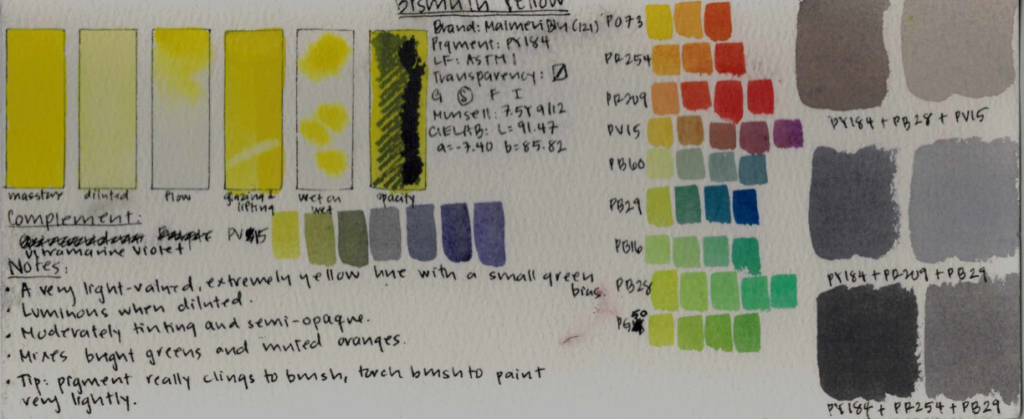 Bismuth Yellow
Brand: MaimeriBlu (121)
Pigment: PY184
LF: ASTM I
Transparency:
G S F I
Munsell: 7.5Y 9/12
CIELAB: L=91.47
a=-7.40 b=85.82
masstone
diluted
flow
glazing &
lifting
wet on
wet
opacity
Complement:
Ultramarine Violet
PV15
Notes:
• A very light-valued, extremely yellow hue with a small green
bias.
• Luminous when diluted.
• Moderately tinting and semi-opaque.
• Mixes bright greens and muted oranges.
• Tip: pigment really clings to brush, touch brush to paint
very lightly.
PO73
PR254
PR209
PV15
PB60
PB29
PB16
PB28
PG50
PY184 + PB28 + PV15
PY184 + PR209 + PB29
PY184 + PR254 + PB29